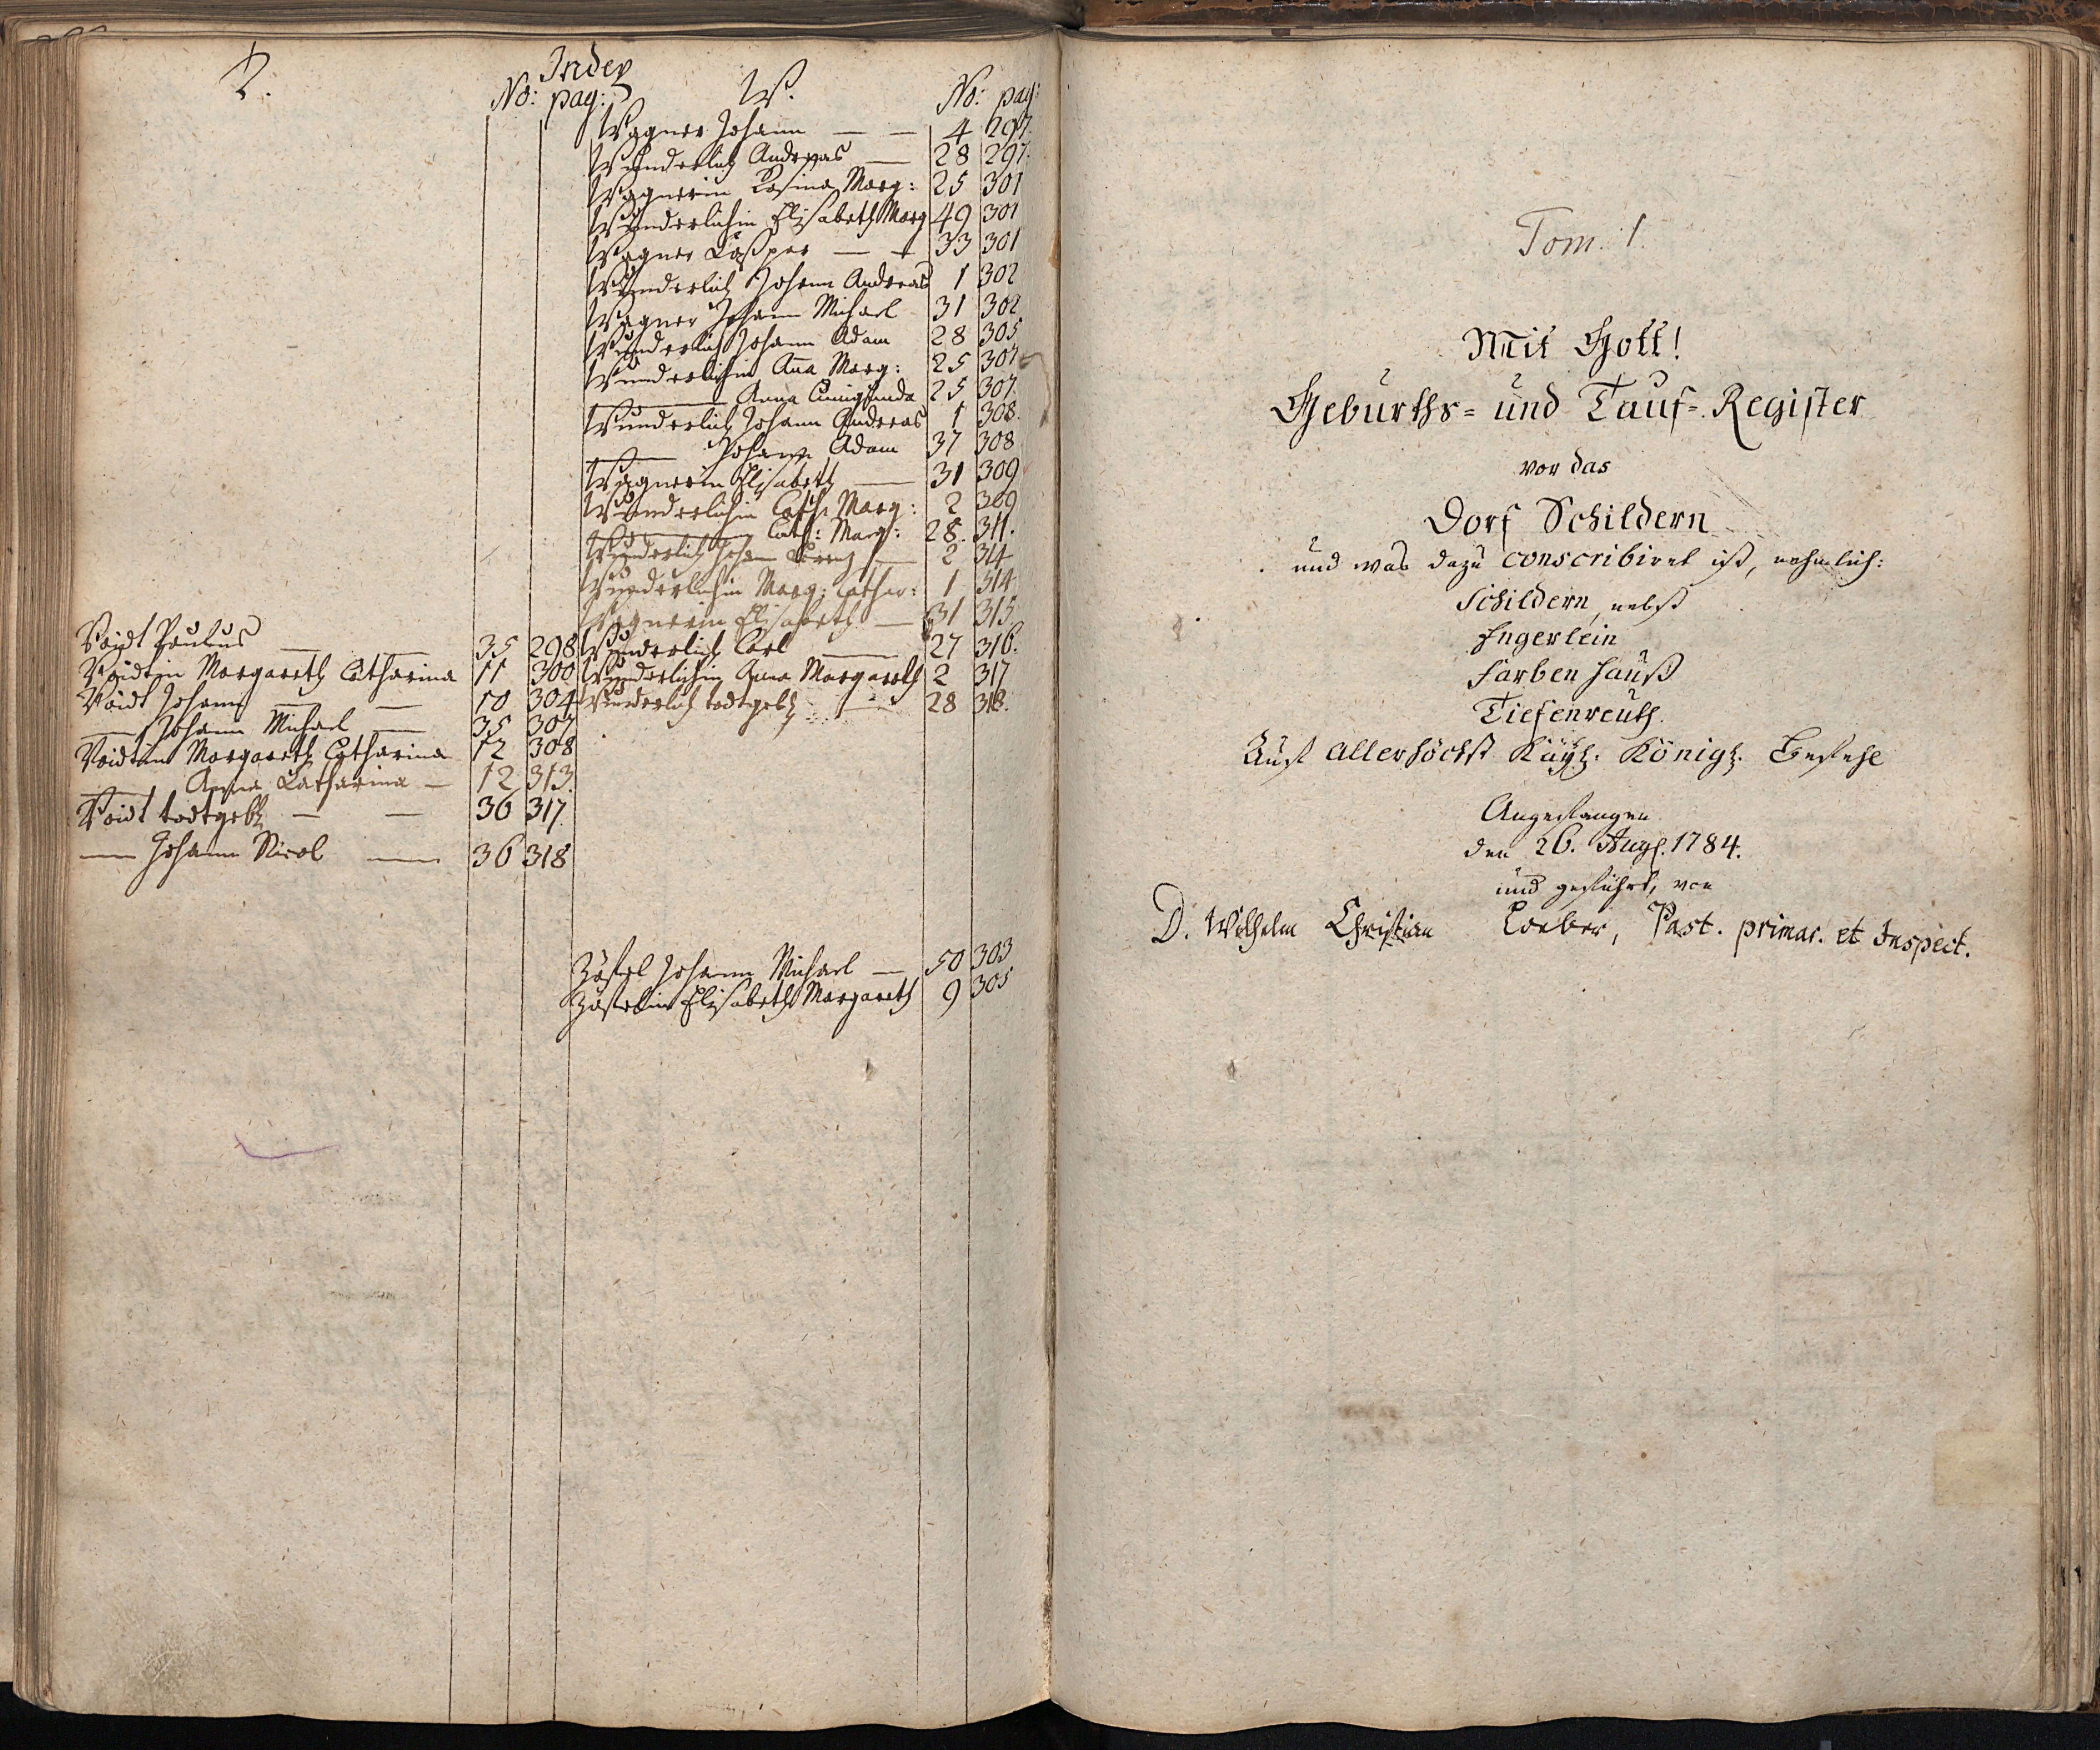 Index
No: pag:
W.
No: pag:
Wagner Johann — — 4 297.
Wunderlich Andreas — 28 297.
Wagnerin Rosina Marg: 25 301
Wunderlichin Elisabeth Marg 49 301
Wagner Caspar — — 33 301
Wunderlich Johann Andreas 1 302
Wagner Johann Michael 31 302
Wunderlich Johann Adam 28 305
Wunderlichin Aña Marg: 25 307
——— Anna Cunigunda 25 307
Wunderlich Johann Andreas 1 308.
——— Johann Adam 37 308
Wagnerin Elisabeth — 31 309
Wunderlichin Cath: Marg: 2 309
——— Cath: Marg: 28. 311.
Wunderlich Johann — 2 314
Wunderlichin Marg: Cathar: 1 314
Wagnerin Elisabeth — 31 315
Wunderlich Carl — 27 316.
Wunderlichin Anna Margareth 2 317
Wunderlich todtgeb. — 28 318.
Voidt Paulus — — 35 298
Voidtin Margareth Catharina 11 300
Voidt Johann — — 10 304
— Johann Michael — 35 307
Voidtin Margareth Catharina 12 308
— Anna Catharina — 12 313.
Voidt todtgeb. — — 36 317.
— Johann Nicol — 36 318
Johann Michael — 50 303
Elisabeth Margareth 9 305
Tom. 1.
Mit Gott!
Geburths= und Tauf=Register
vor das
Dorf Schildern
und was dazu conscribiret ist, nehmlich:
Schildern, nebst
Ingerlein
Farbenhauß
Tiefenreuth.
Auf allerhöchst Kayl. Königl. Befehl
Angefangen
den 26. Aug. 1784.
und geführt, von
D. Wilhelm Christian Loeber, Past. primar. et Inspect.